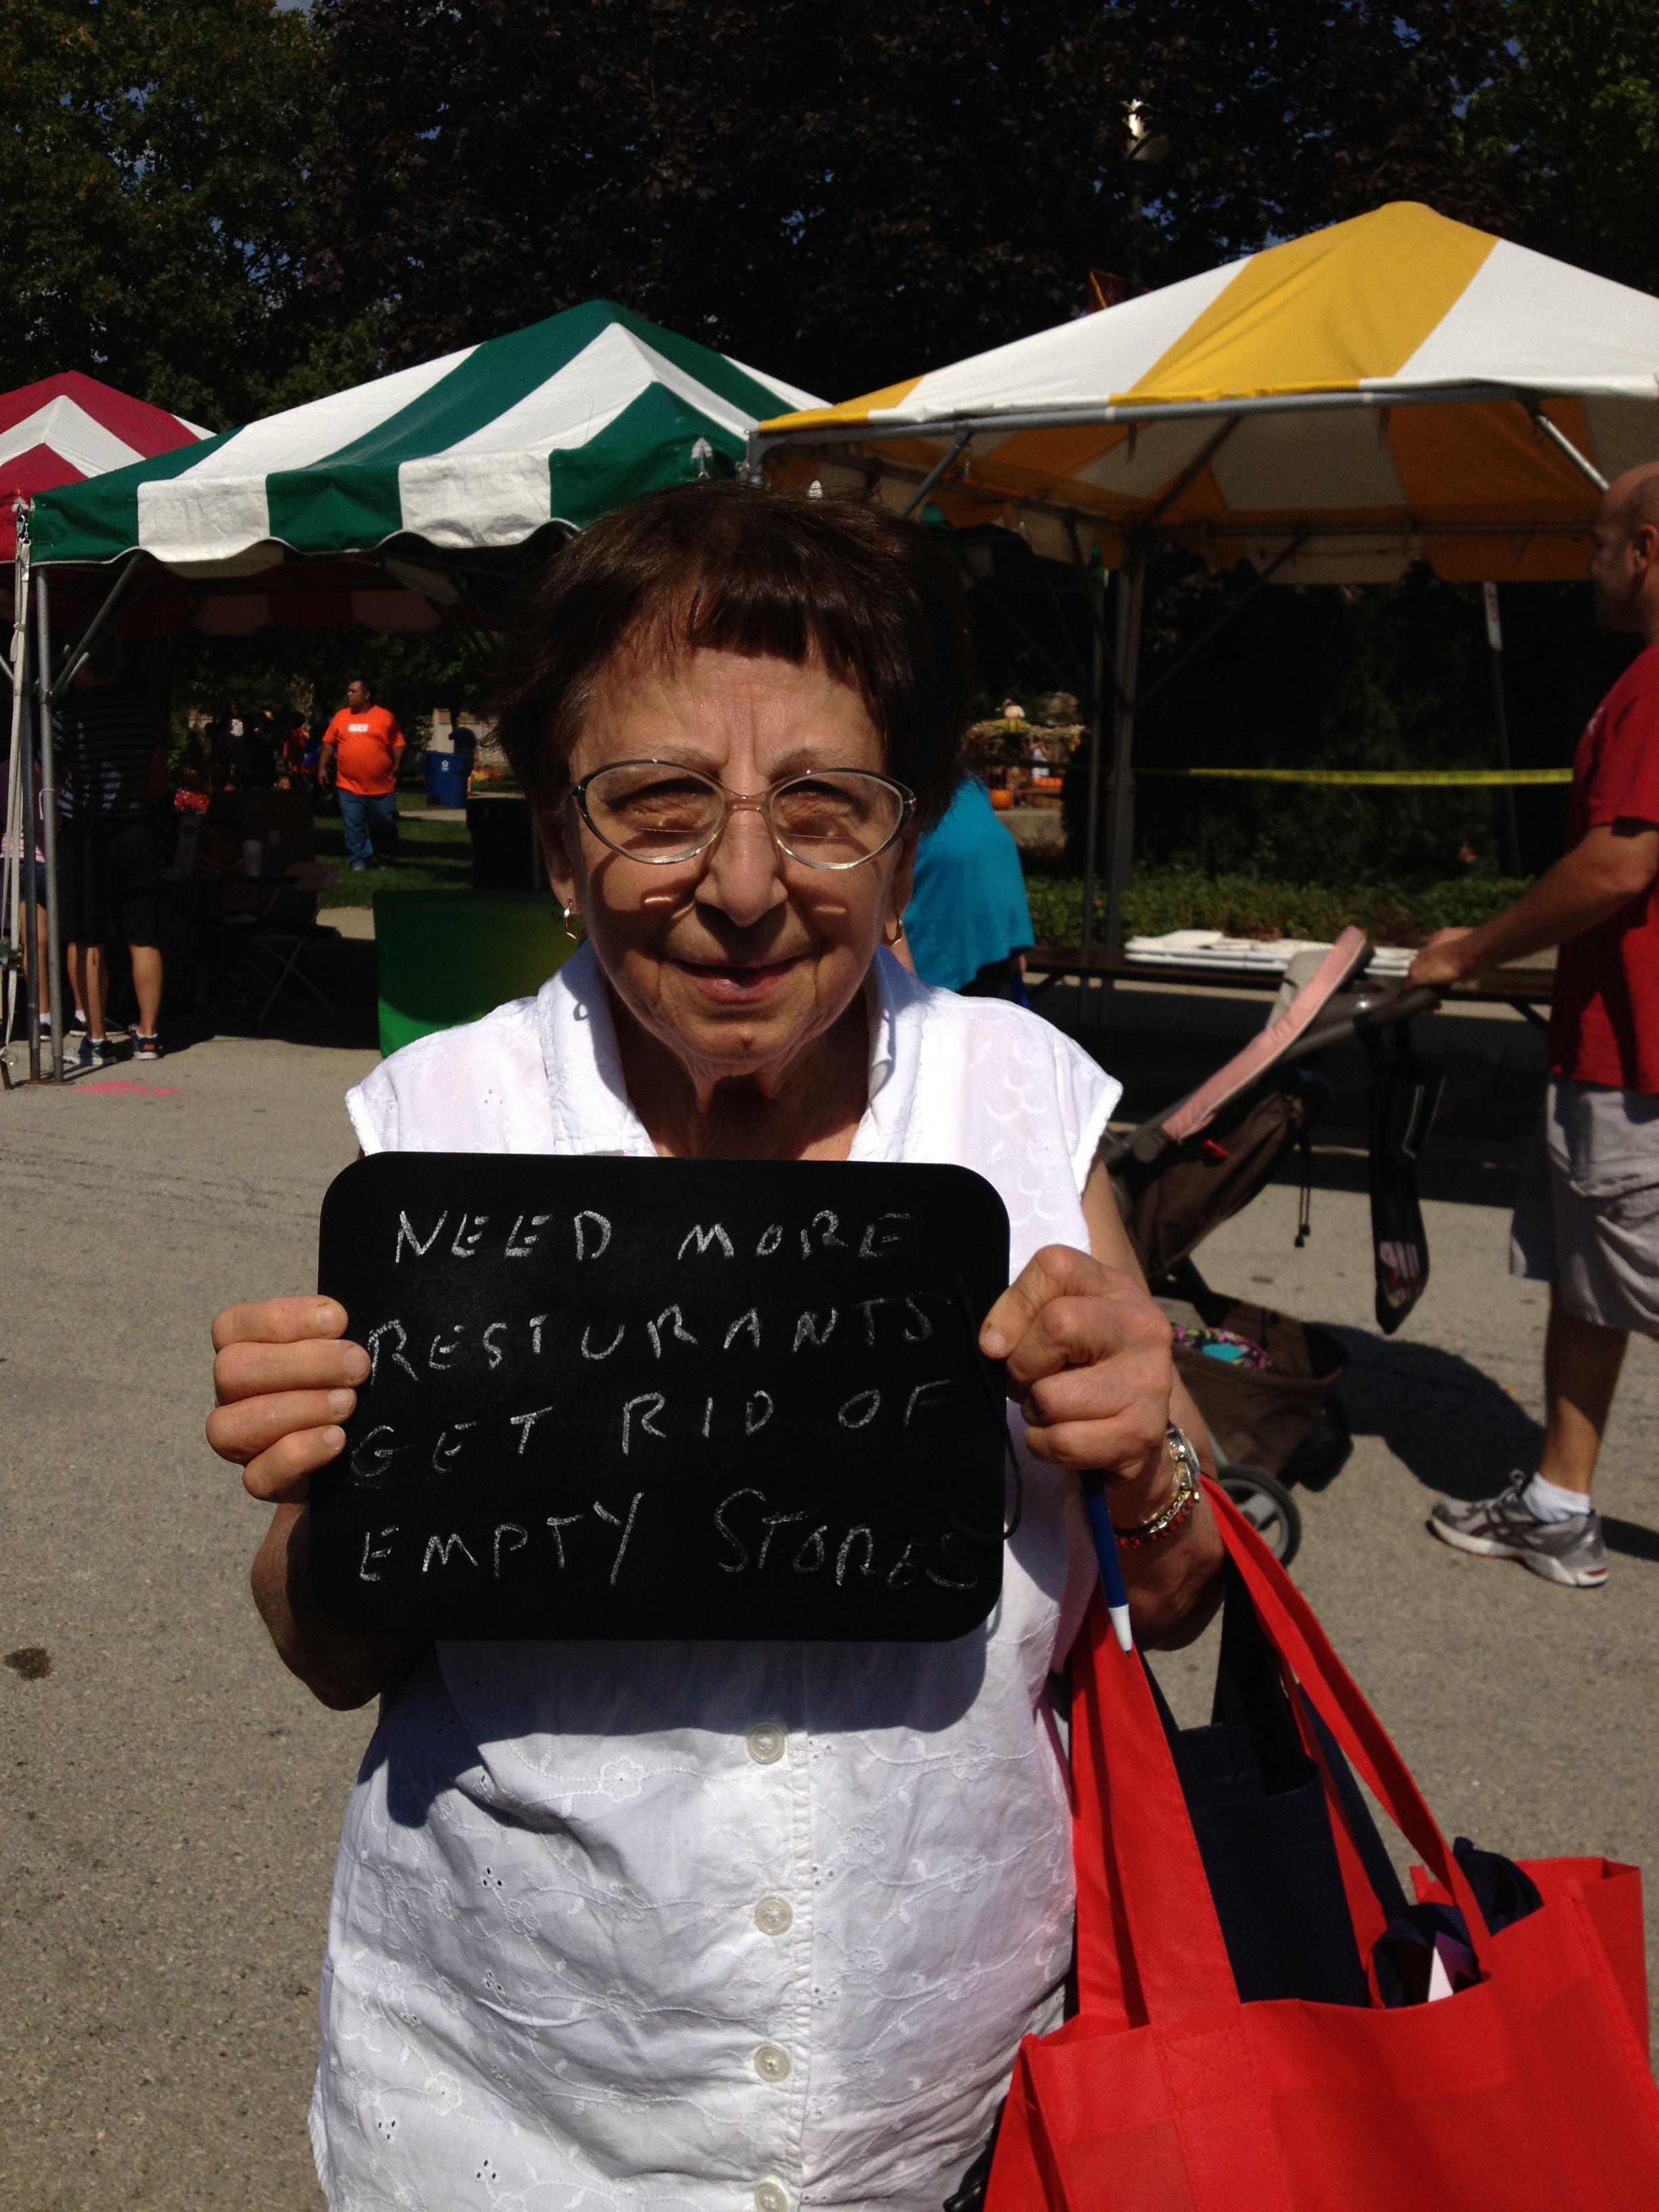 NEED MORE
RESTURANTS
GET RID OF
EMPTY STORES